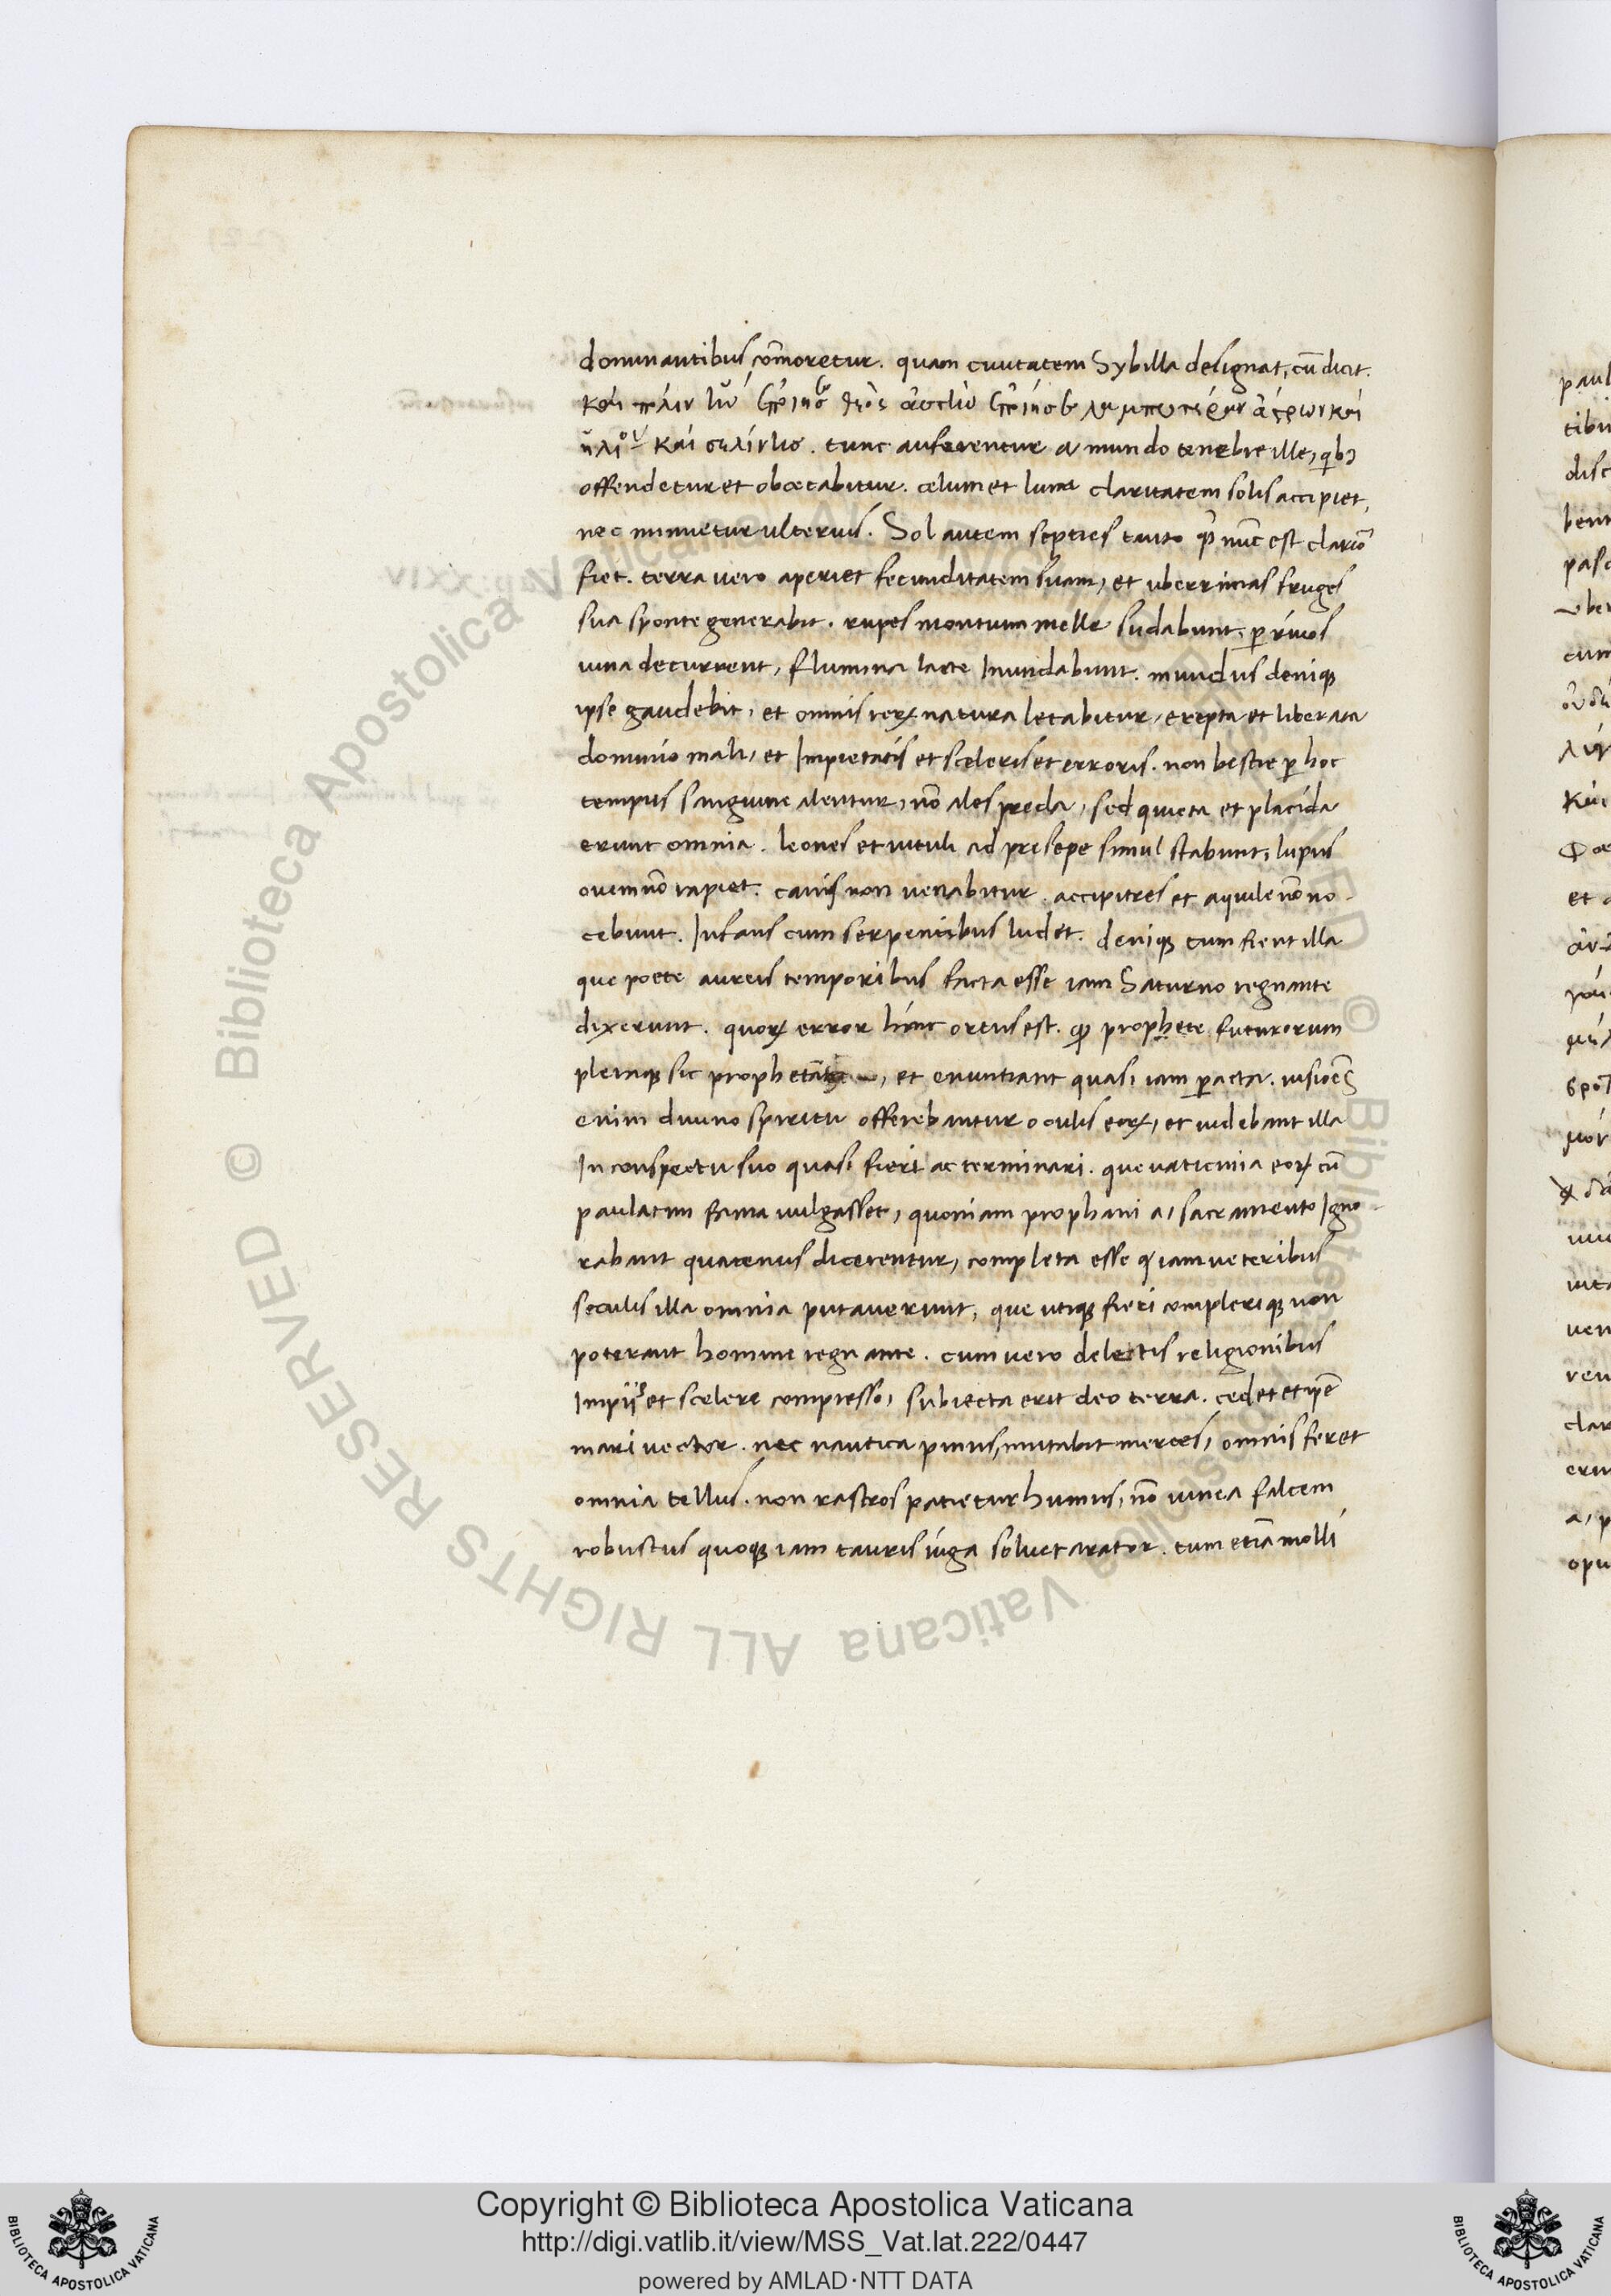 dominantibus cōmoretur. quam ciuitatem Sybilla designat, cū dicit.
καὶ πόλιν ἣν ἐποίησε θεὸς αὐτὴν ἐποίησε λαμπροτέραν ἄςρων καί
ἡλίου καὶ σελήνης. tunc auferentur a mundo tenebre ille, qibꝫ
offendetur et obcecabitur. celum et luna claritatem solis accipiet,
nec minuetur ulterius. Sol autem septies tanto qͣ nūc est clarior̄
fiet. terra uero aperiet fecunditatem suam, et uberrimas fruges
sua sponte generabit. rupes montium melle sudabunt, ꝑ riuos
uina decurrent, flumina lacte Inundabunt. mundus deniqꝫ
ipse gaudebit, et omnis reꝝ natura letabitur, erepta et liberata
dominio mali, et Impietatis et sceleris et erroris. non bestie ꝑ hoc
tempus sanguine alentur, nō ales preda, sed quieta et placida
erunt omnia. leones et uituli ad presepe simul stabunt, lupus
ouem nō rapiet. canis non uenabitur. accipitres et aquile nō no-
cebunt. Infans cum serpentibus ludet. deniqꝫ tum fient illa
que poete aureis temporibus facta esse iam Saturno regnante
dixerunt. quoꝝ error hinc ortus est. qͩ prophete futurorum
pleraqꝫ sic et enuntiant quasi iam ꝑacta. uisiōes
enim diuino spiritu offerebantur oculis eoꝝ, et uidebant illa
In conspectu suo quasi fieri ac terminari. que uaticinia eoꝝ cū
paulatim fama uulgasset, quoniam prophani a, sacramento Igno-
rabant quatenus dicerentur, completa esse iam ueteribus
seculis illa omnia putauerunt, que utiqꝫ fieriompleriqꝫ non
poterant homine regnante. cum uero deletis religionibus
Impijs et scelere compresso, subiecta erit deo terra. cedet et ip̄e
mari uector. nec nautica pinus, mutabit merces, omnis feret
omnia tellus. non rastros patietur humus, nō uinea falcem
robustus quoqꝫ iam tauris iuga soluet arator. tum etiā molli
Copyright © Biblioteca Apostolica Vaticana
http://digi.vatlib.it/view/MSS_Vat.lat.222/0447
powered by AMLAD·NTT DATA